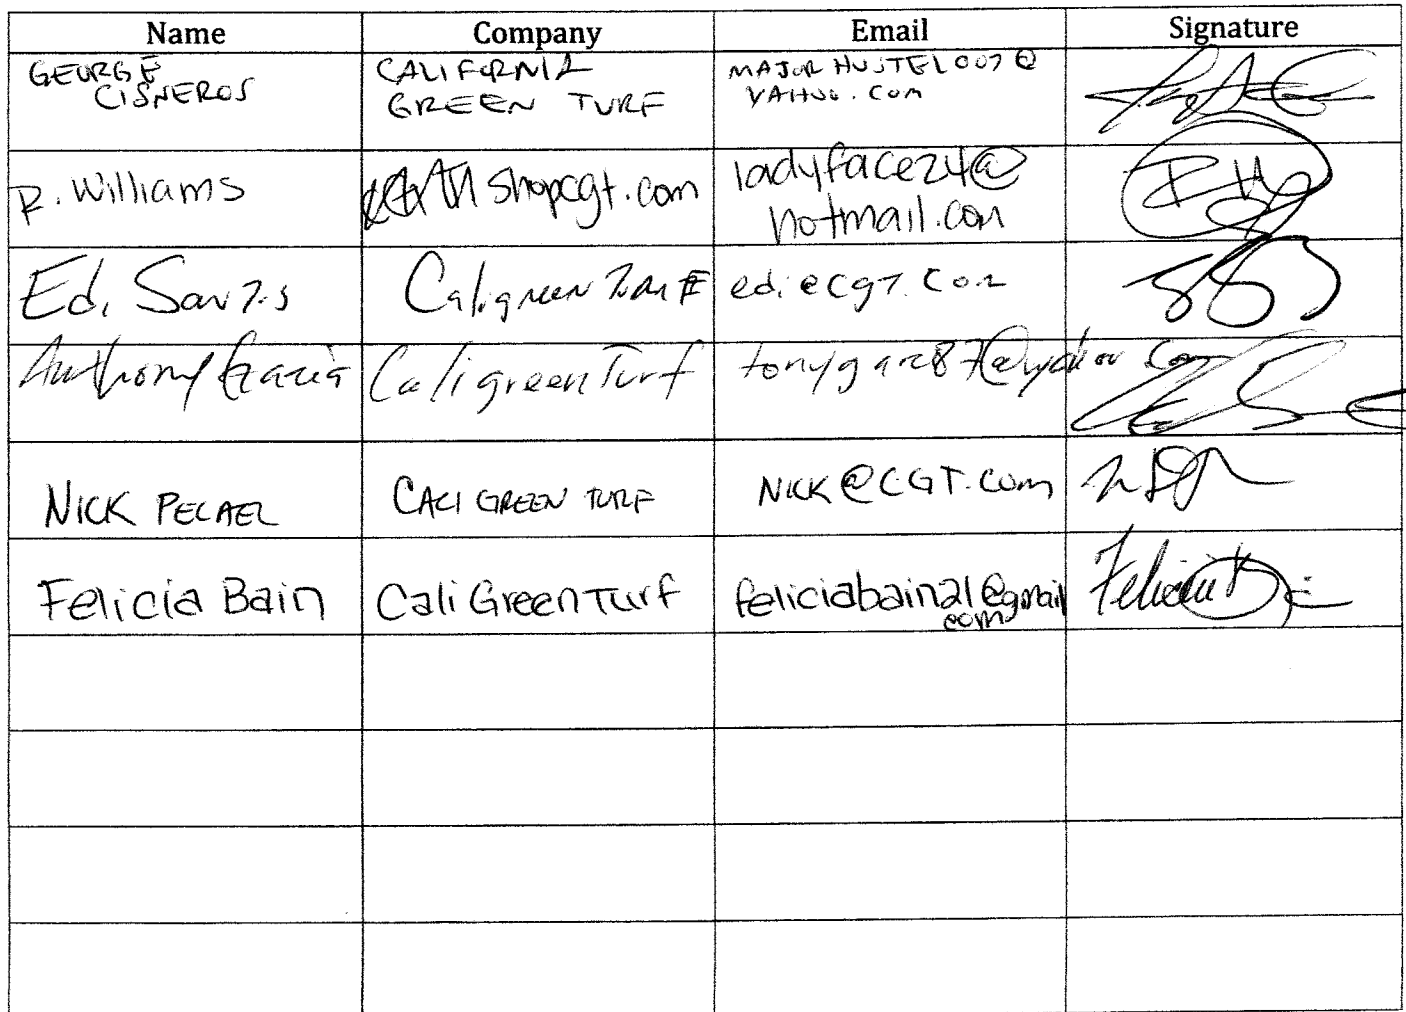 Name Company Email Signature
GEORGE
CISNEROS
CALIFORNIA
GREEN TURF
MAJORHUSTEL007@
YAHOO.COM
R. Williams
shopcgt.com
ladyface24@
hotmail.com
Edi
Caligreen Turf
edi@cgt.com
Anthony Garcia
Caligreen Turf
NICK
CALI GREEN TURF
NICK@CGT.COM
Felicia Bain
Cali Green Turf
feliciabain21@gmail
.com